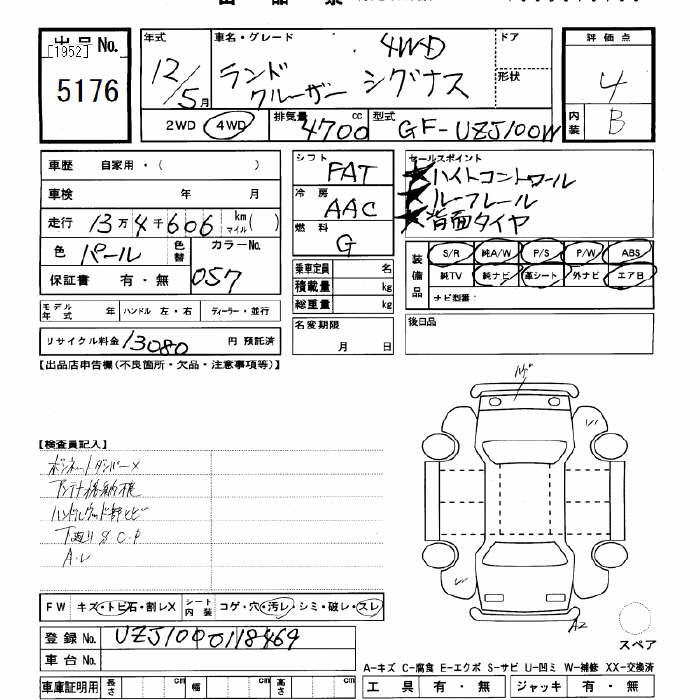 出品No.
[1952]
5176
年式
12/5月
車名・グレード
4WD
ランド
クルーザー シグナス
ドア
形状
評価点
4
内装
B
2WD 4WD
排気量
4700cc
型式
GF-UZJ100W
車歴 自家用・( )
車検 年 月
走行 13万4千606 km マイル( )
色 パール
色替
カラーNo.
057
保証書 有・無
モデル年式 年 ハンドル 左・右 ディーラー・並行
リサイクル料金 13080 円 預託済
シフト
FAT
冷房
AAC
燃料
G
乗車定員 名
積載量 kg
総重量 kg
名変期限
月 日
セールスポイント
★ハイトコントロール
★ルーフレール
★背面タイヤ
装備品
S/R 純A/W P/S P/W ABS
純TV 純ナビ 革シート 外ナビ エアB
ナビ型番:
後日品
【出品店申告欄(不良箇所・欠品・注意事項等)】
【検査員記入】
ボンネットダンパー×
アンテナ格納〜
ハンドルウッド部ヒビ
下廻りS C.P
A.U
FW キズ・トビ石・割レX
シート内装 コゲ・穴・汚レ・シミ・破レ・スレ
登録No. UZJ100-0118469
車台No.
車庫証明用 長さ cm 幅 cm 高さ cm
A2
スペア
A-キズ C-腐食 E-エクボ S-サビ U-凹ミ W-補修 XX-交換済
工具 有・無 ジャッキ 有・無